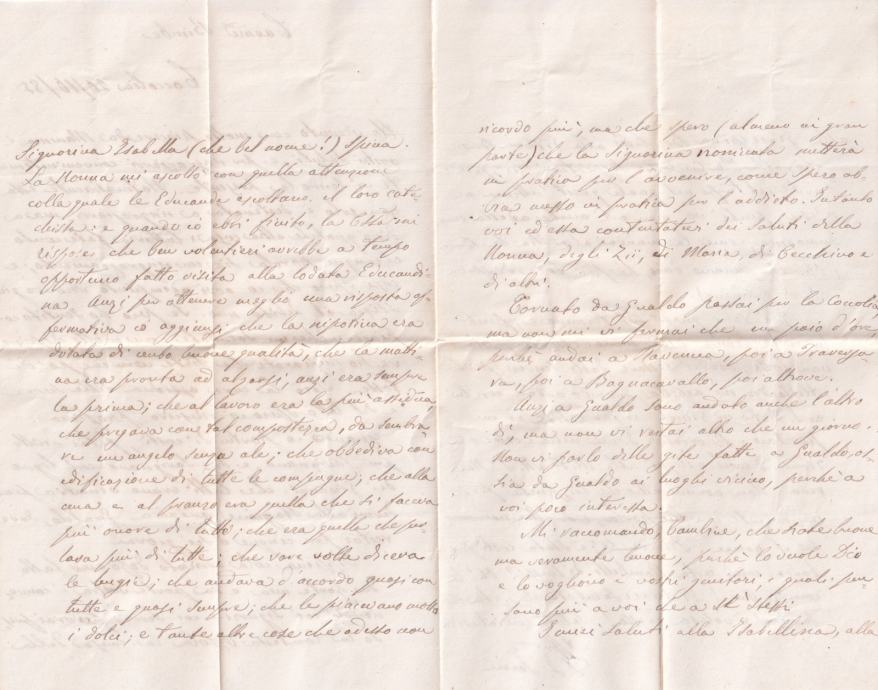 Signorina Isabella (che bel nome!) Spina.
La Nonna mi ascoltò con quella attenzione
colla quale le Educande ascoltano il loro cate-
chista: e quando io ebbi finito, la Essa mi
rispose che ben volontieri avrebbe a tempo
opportuno fatto visita alla lodata Educandi-
na. Anzi per ottenere meglio una risposta af-
fermativa io aggiunsi che la nipotina era
dotata di cento buone qualità, che la matti-
na era pronta ad alzarsi, anzi era sempre
la prima; che al lavoro era la più assidua,
che pregava con tal compostezza, da sembra-
re un angelo senza ale; che obbediva con
edificazione di tutte le compagne; che alla
cena e al pranzo era quella che si faceva
più onore di tutte; che era quella che par-
lava più di tutte; che rare volte diceva
le bugie; che andava d'accordo quasi con
tutte e quasi sempre; che le piacevano molto
i dolci; e tante altre cose che adesso non
ricordo più, ma che spero (almeno in gran
parte) che la Signorina nominata metterà
in pratica per l'avvenire, come spero ab-
bia messo in pratica per l'addietro. Intanto
voi ed essa contentatevi dei saluti della
Nonna, degli Zii, di Maria, di Cecchino e
di altri.
Tornato da Gualdo passai per la Coccolia
ma non mi vi fermai che un paio d'ore,
perchè andai a Ravenna, poi a Traversa-
ra, poi a Bagnacavallo, poi altrove.
Anzi a Gualdo sono andato anche l'altro
dì, ma non vi restai altro che un giorno.
Non vi parlo delle gite fatte a Gualdo, os-
sia da Gualdo ai luoghi vicino, perchè a
voi poco interessa.
Mi raccomando, bambine, che siate buone
ma veramente buone, perchè lo vuole Dio
e lo vogliono i vostri genitori, i quali pen-
sano più a voi che a se stessi
I miei saluti alla Isabellina, alla